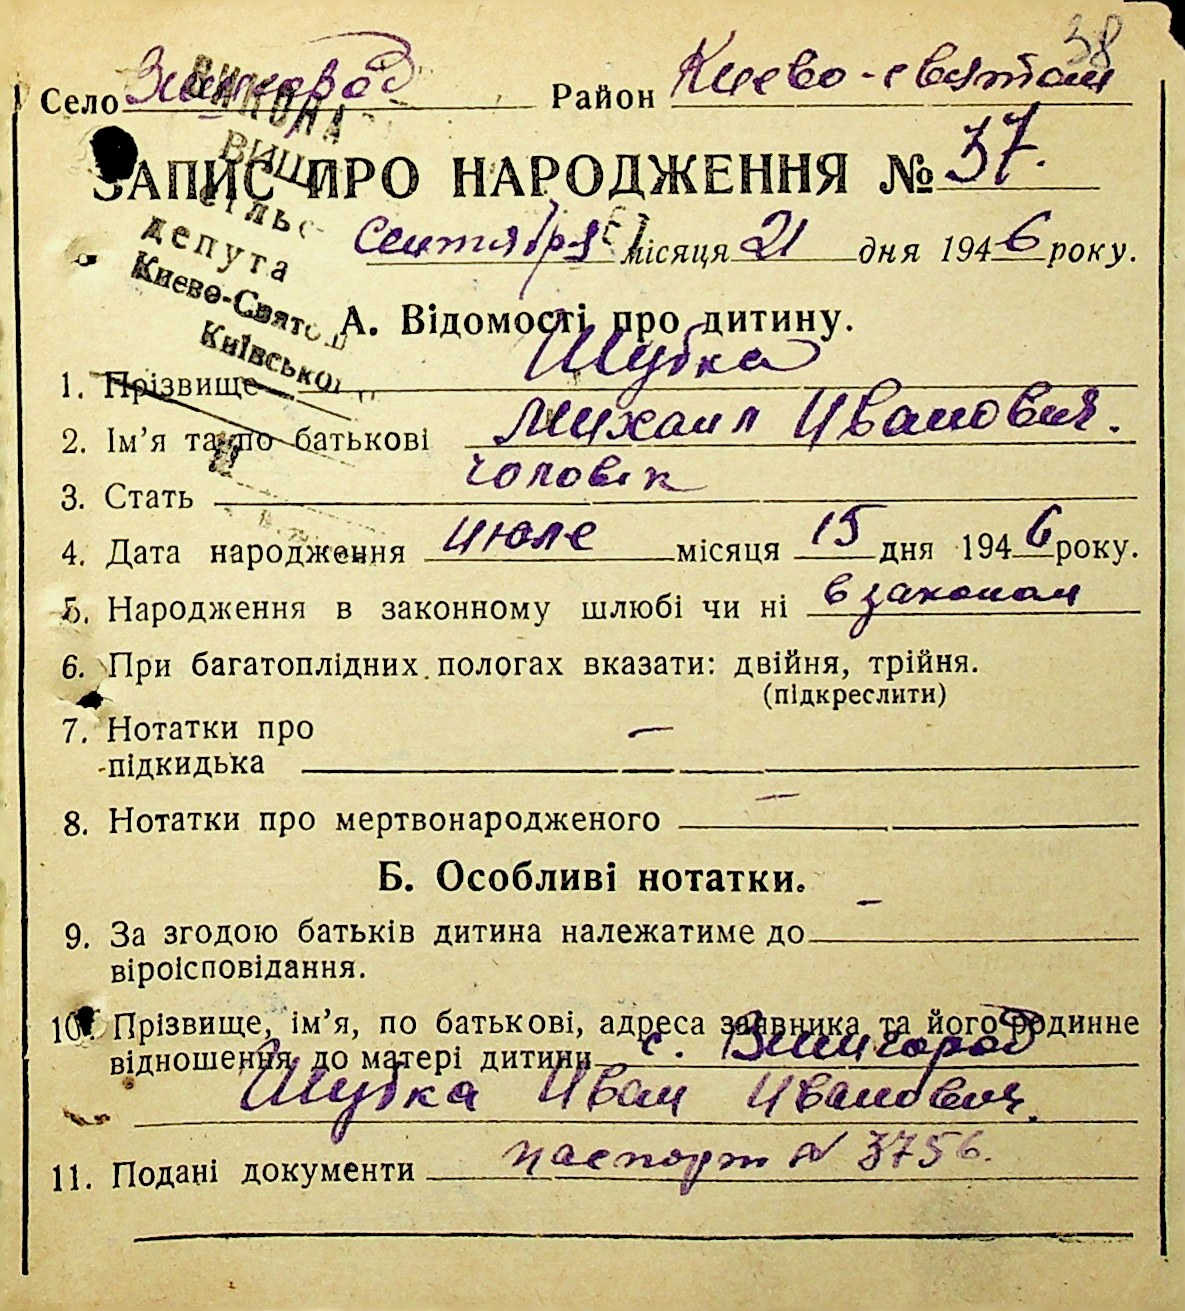 38
Село Вишгород Район Киево-святош
ВИКОНА
ВИШ
сільс
депута
Києво-Свято
Київської
ЗАПИС ПРО НАРОДЖЕННЯ № 37.
Сентября місяця 21 дня 1946 року.
А. Відомості про дитину.
1. Прізвище Шубка
2. Ім'я та по батькові Михаил Иванович.
3. Стать чоловік
4. Дата народження июле місяця 15 дня 1946 року.
5. Народження в законному шлюбі чи ні в законом
6. При багатоплідних пологах вказати: двійня, трійня.
(підкреслити)
7. Нотатки про —
підкидька
8. Нотатки про мертвонародженого —
Б. Особливі нотатки.
9. За згодою батьків дитина належатиме до —
віроісповідання.
10. Прізвище, ім'я, по батькові, адреса заявника та його родинне
відношення до матері дитини с. Вишгород
Шубка Иван Иванович.
11. Подані документи паспорт № 3756.